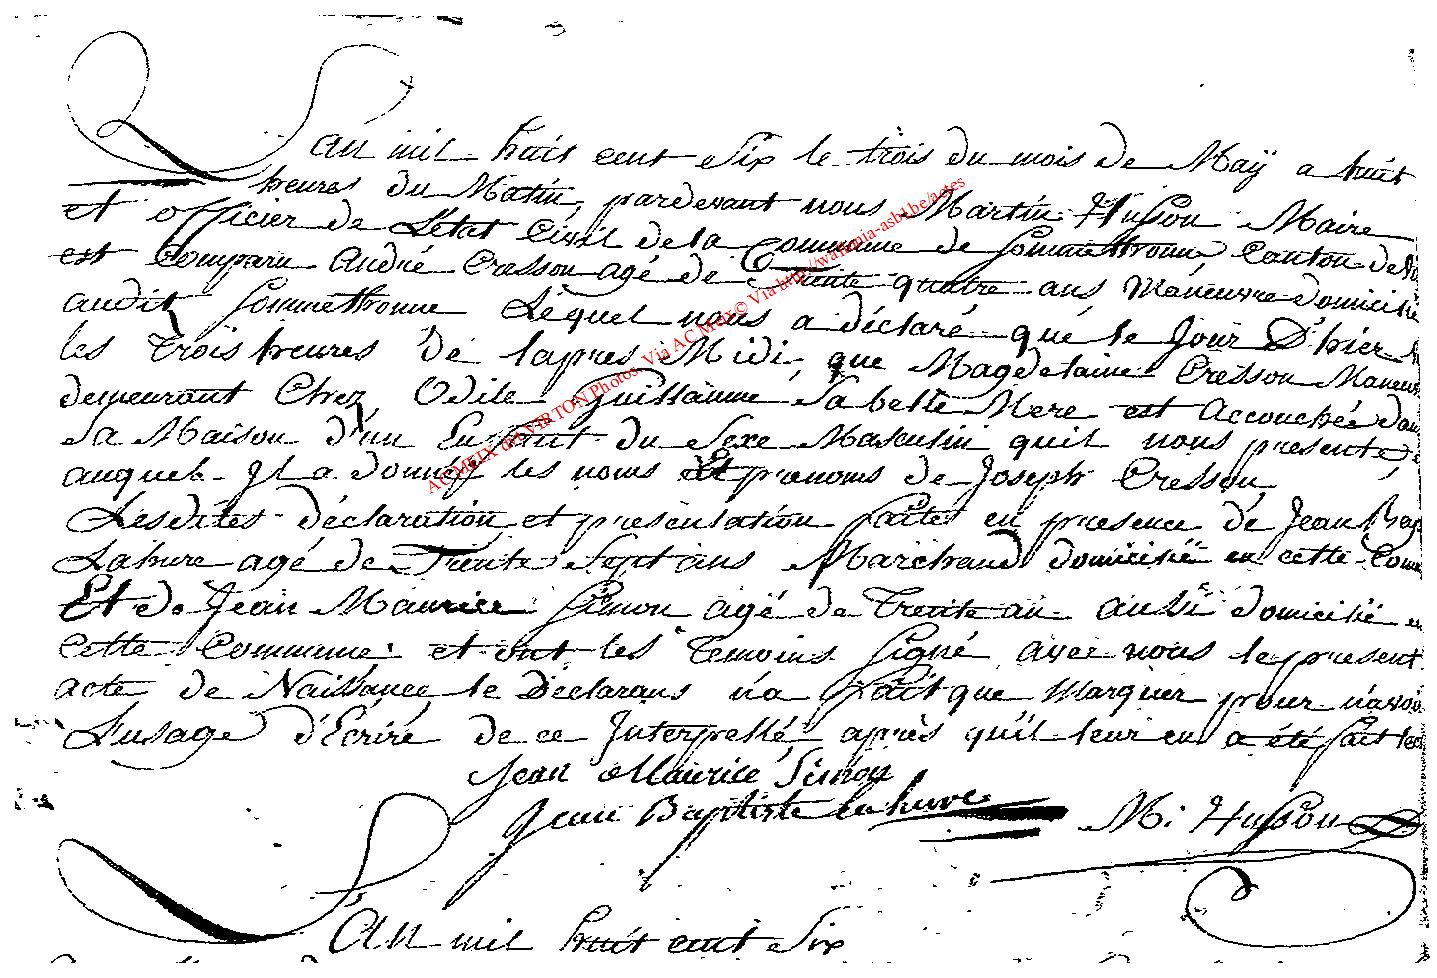 L'an mil huit cent Six le trois du mois de Maÿ a huit
heures du Matin, pardevant nous Martin Husson Maire
et officier de L'état Civil de la Commune de Sommethonne Canton de
est Comparu André Cresson agé de Trente quatre ans Maneuvre domicilié
audit Sommethonne Lequel nous a déclaré que le Jour D'hier
les Trois heures de lapres Midi, que Magdelaine Cresson Maneuv
demeurant Chez Odile Guillaume Sa belle Mere est accouchée dan
Sa Maison d'un Enfant du Sexe Masculin quil nous presente,
auquel Il a donné les noms Et prenoms de Joseph Cresson,
Lesdites déclaration et presentation faites en presence de Jean Bap
Lahure agé de Trente Sept ans Marchand domicilié en cette Com
Et de Jean Maurice Simon agé de Trente an aussi domicilié en
cette Commune et ont les Temoins Signé avec nous le present
acte de Naissance, le Déclarans n'a fait que Marquer pour n'avoir
L'usage d'Ecriré de ce Interpellé, après qu'il leur en a été fait lec
Jean Maurice Simon
Jean Baptiste Lahure
M. Husson
L'an mil huit cent Six
ACMEIX dt VIRTON Photos. Via AC Meix© Via http://wallonia-asbl.be/actes